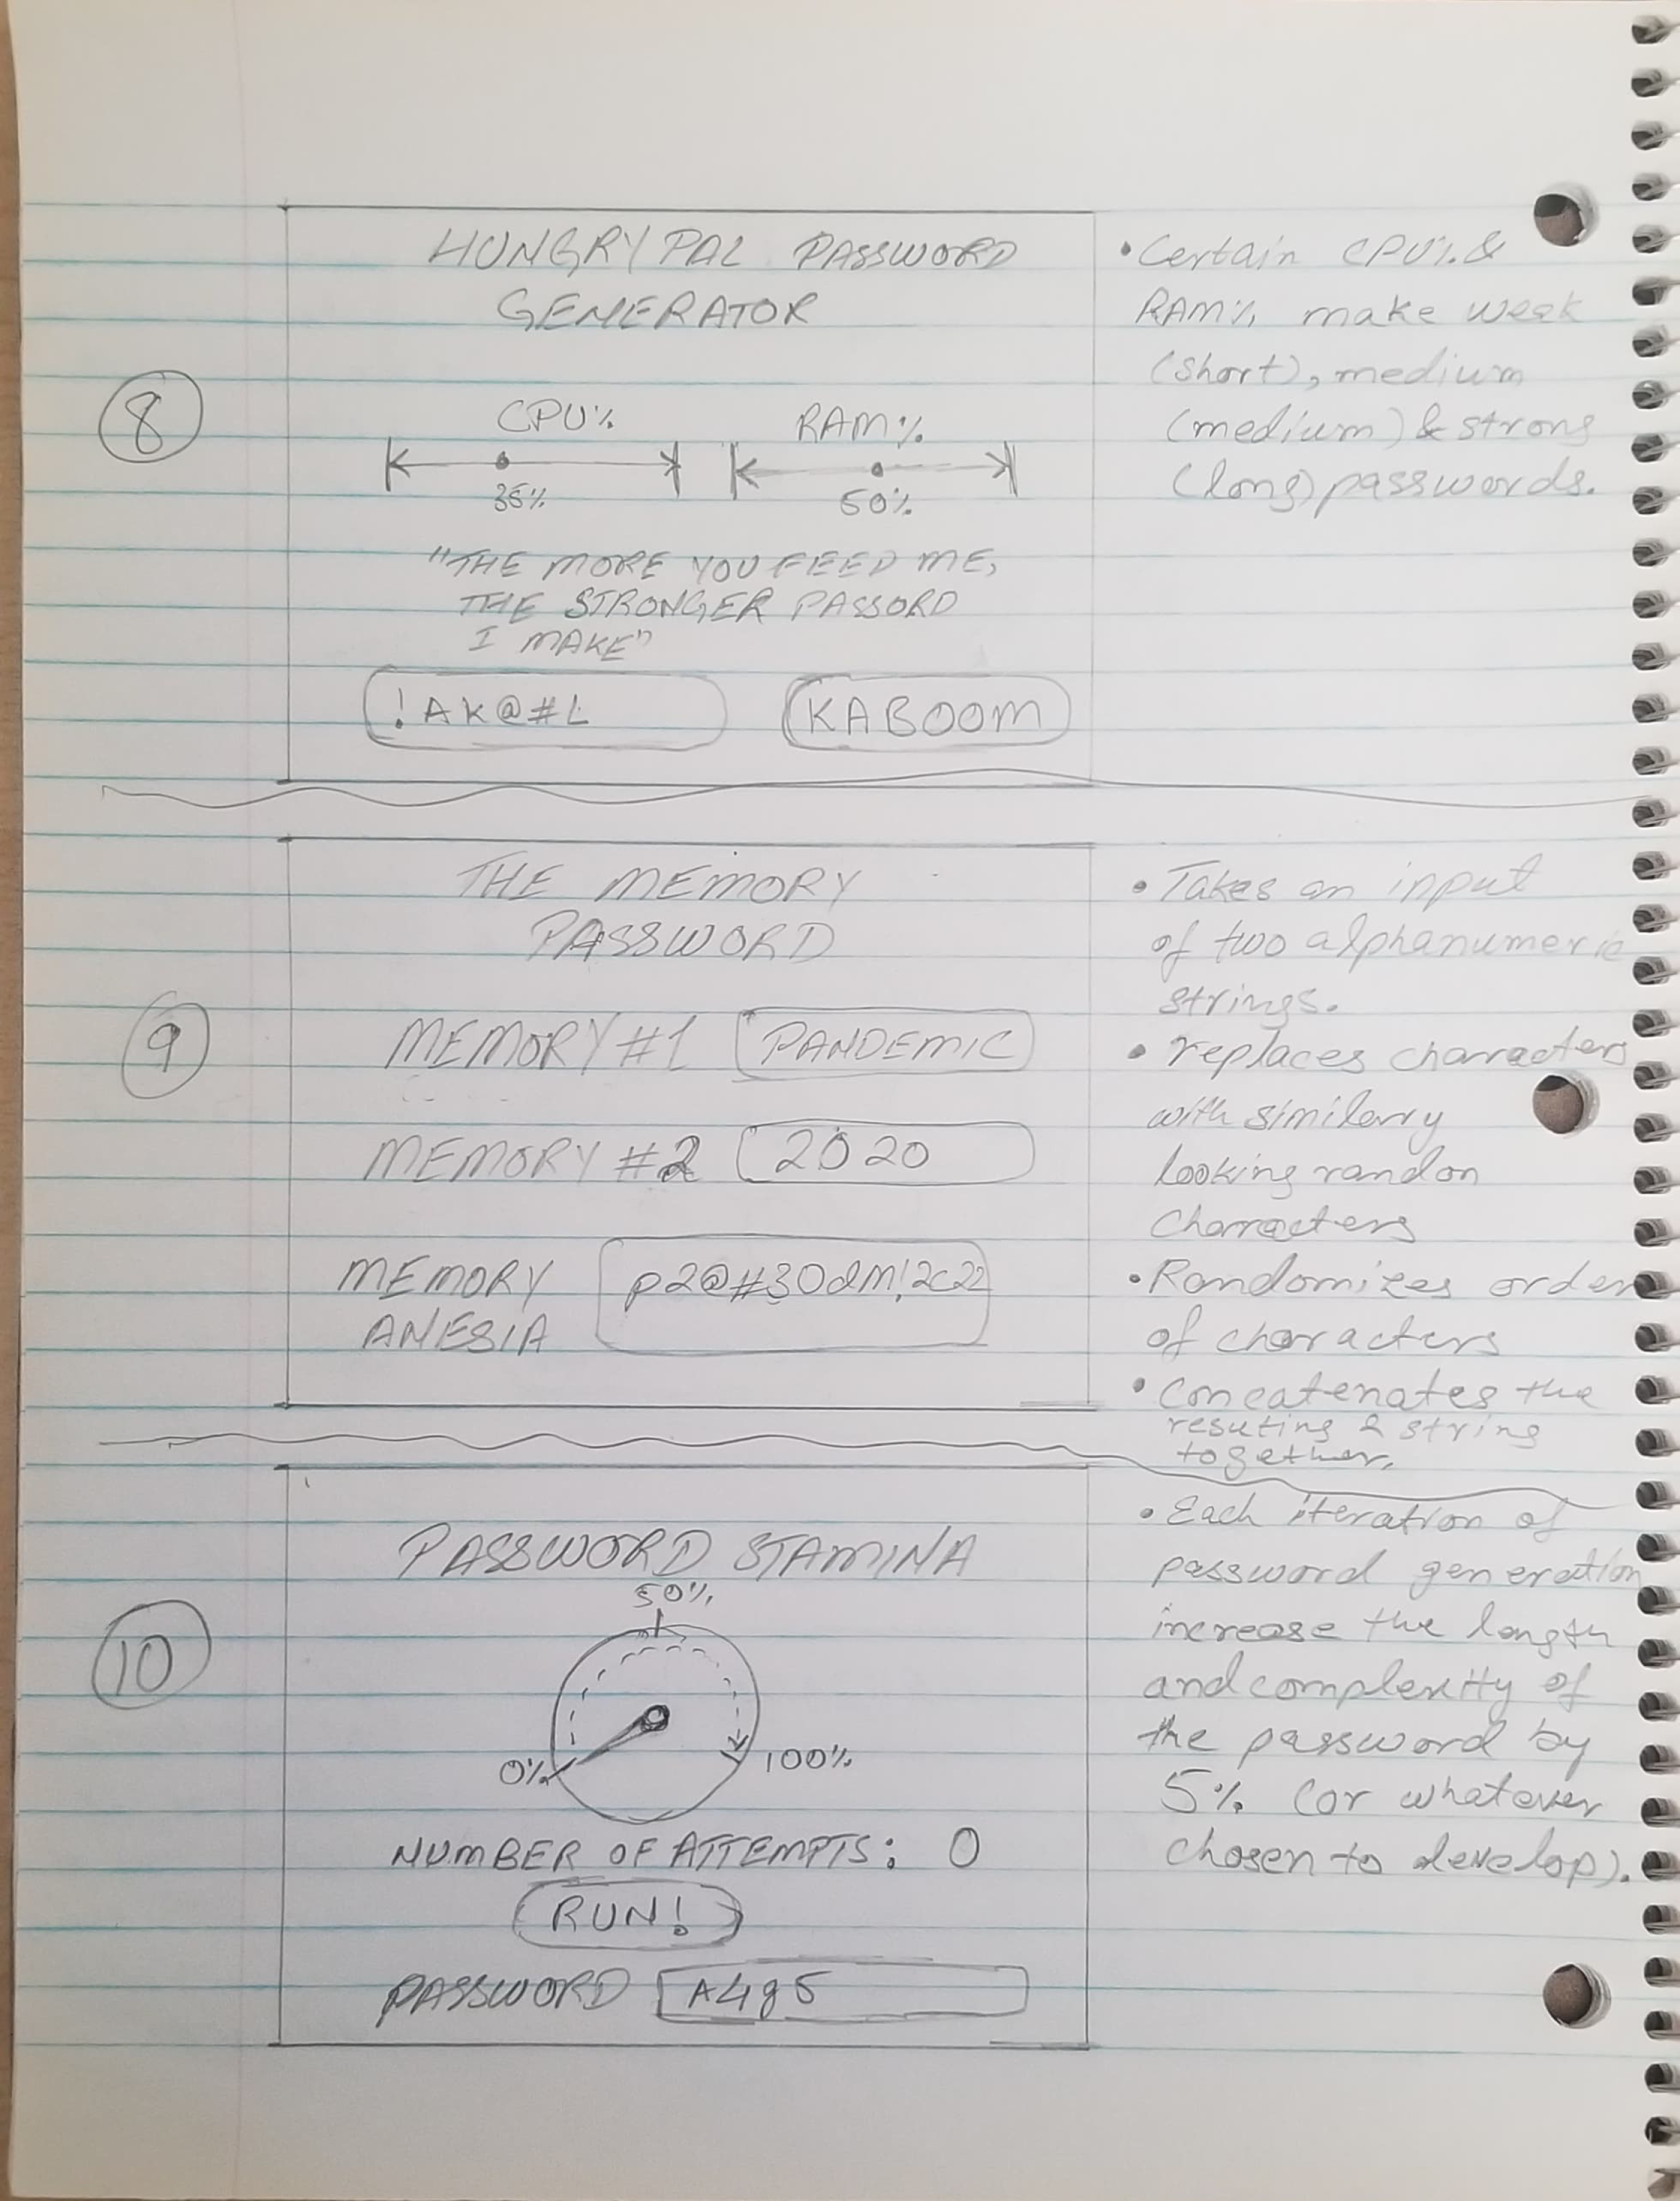 HUNGRY PAL PASSWORD
GENERATOR
8
CPU%
RAM%
35%
50%
"THE MORE YOU FEED ME,
THE STRONGER PASSORD
I MAKE"
!AK@#L
KABOOM
• Certain CPU% &
RAM% make weak
(short), medium
(medium) & strong
(long) passwords.
THE MEMORY
PASSWORD
9
MEMORY #1 PANDEMIC
MEMORY #2 2020
MEMORY p2@#30dm!2c22
ANESIA
• Takes an input
of two alphanumeric
strings.
• replaces characters
with similary
looking randon
characters
• Randomizes order
of characters
• Concatenates the
resuting & string
together.
PASSWORD STAMINA
10
50%
0%
100%
NUMBER OF ATTEMPTS: 0
RUN!
PASSWORD A4g5
• Each iteration of
password generation
increase the length
and complexity of
the password by
5% (or whatever
chosen to develop).